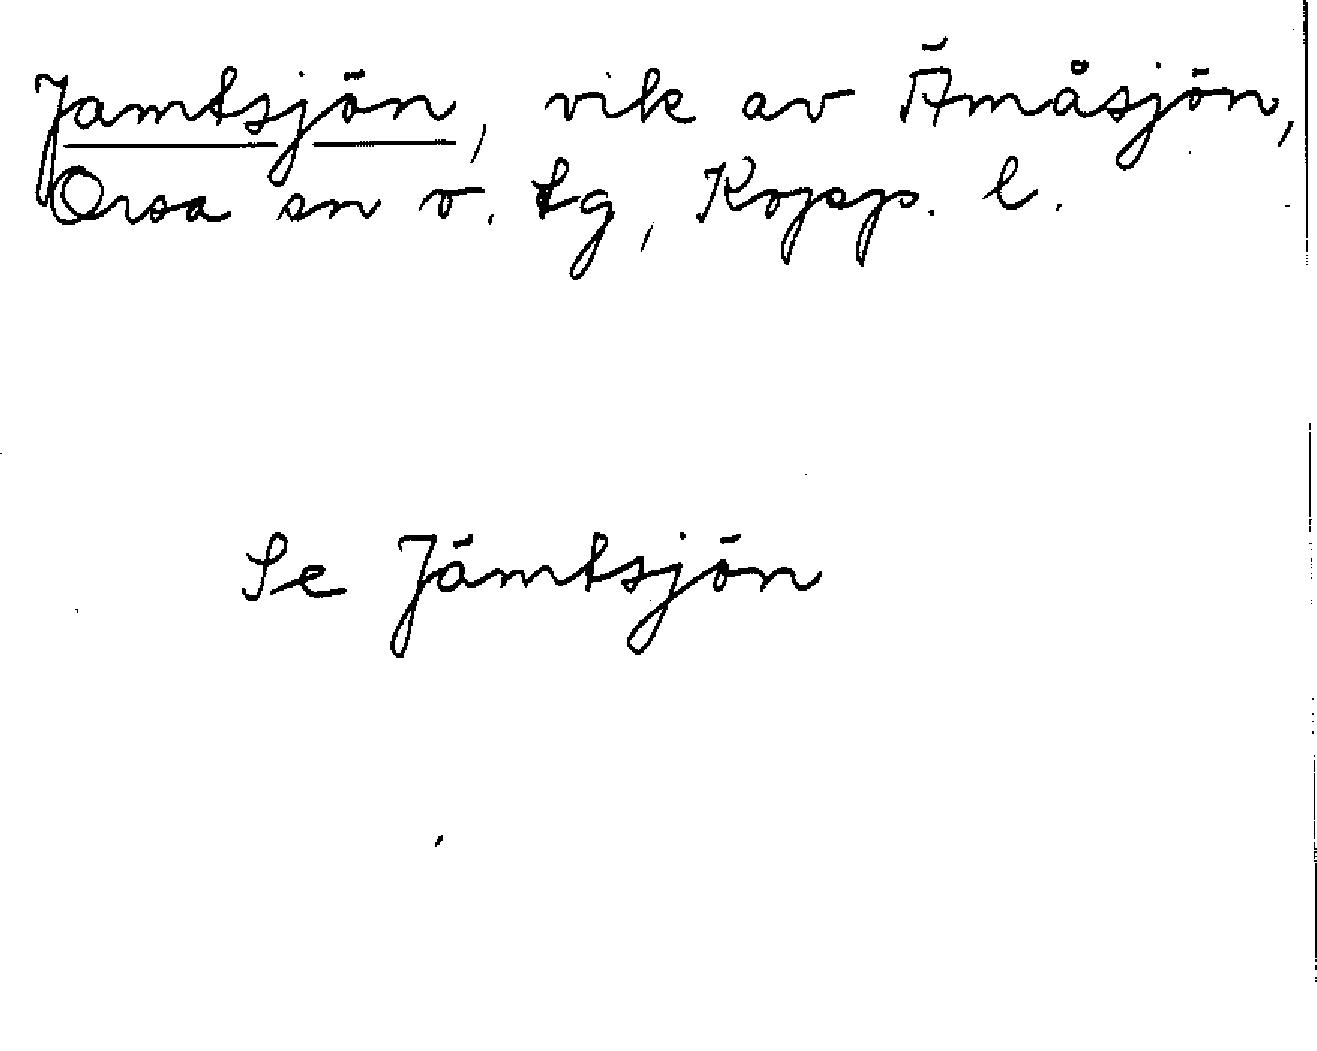 Jamtsjön, vik av Ämåsjön,
Orsa sn o. tg, Kopp. l.
Se Jämtsjön